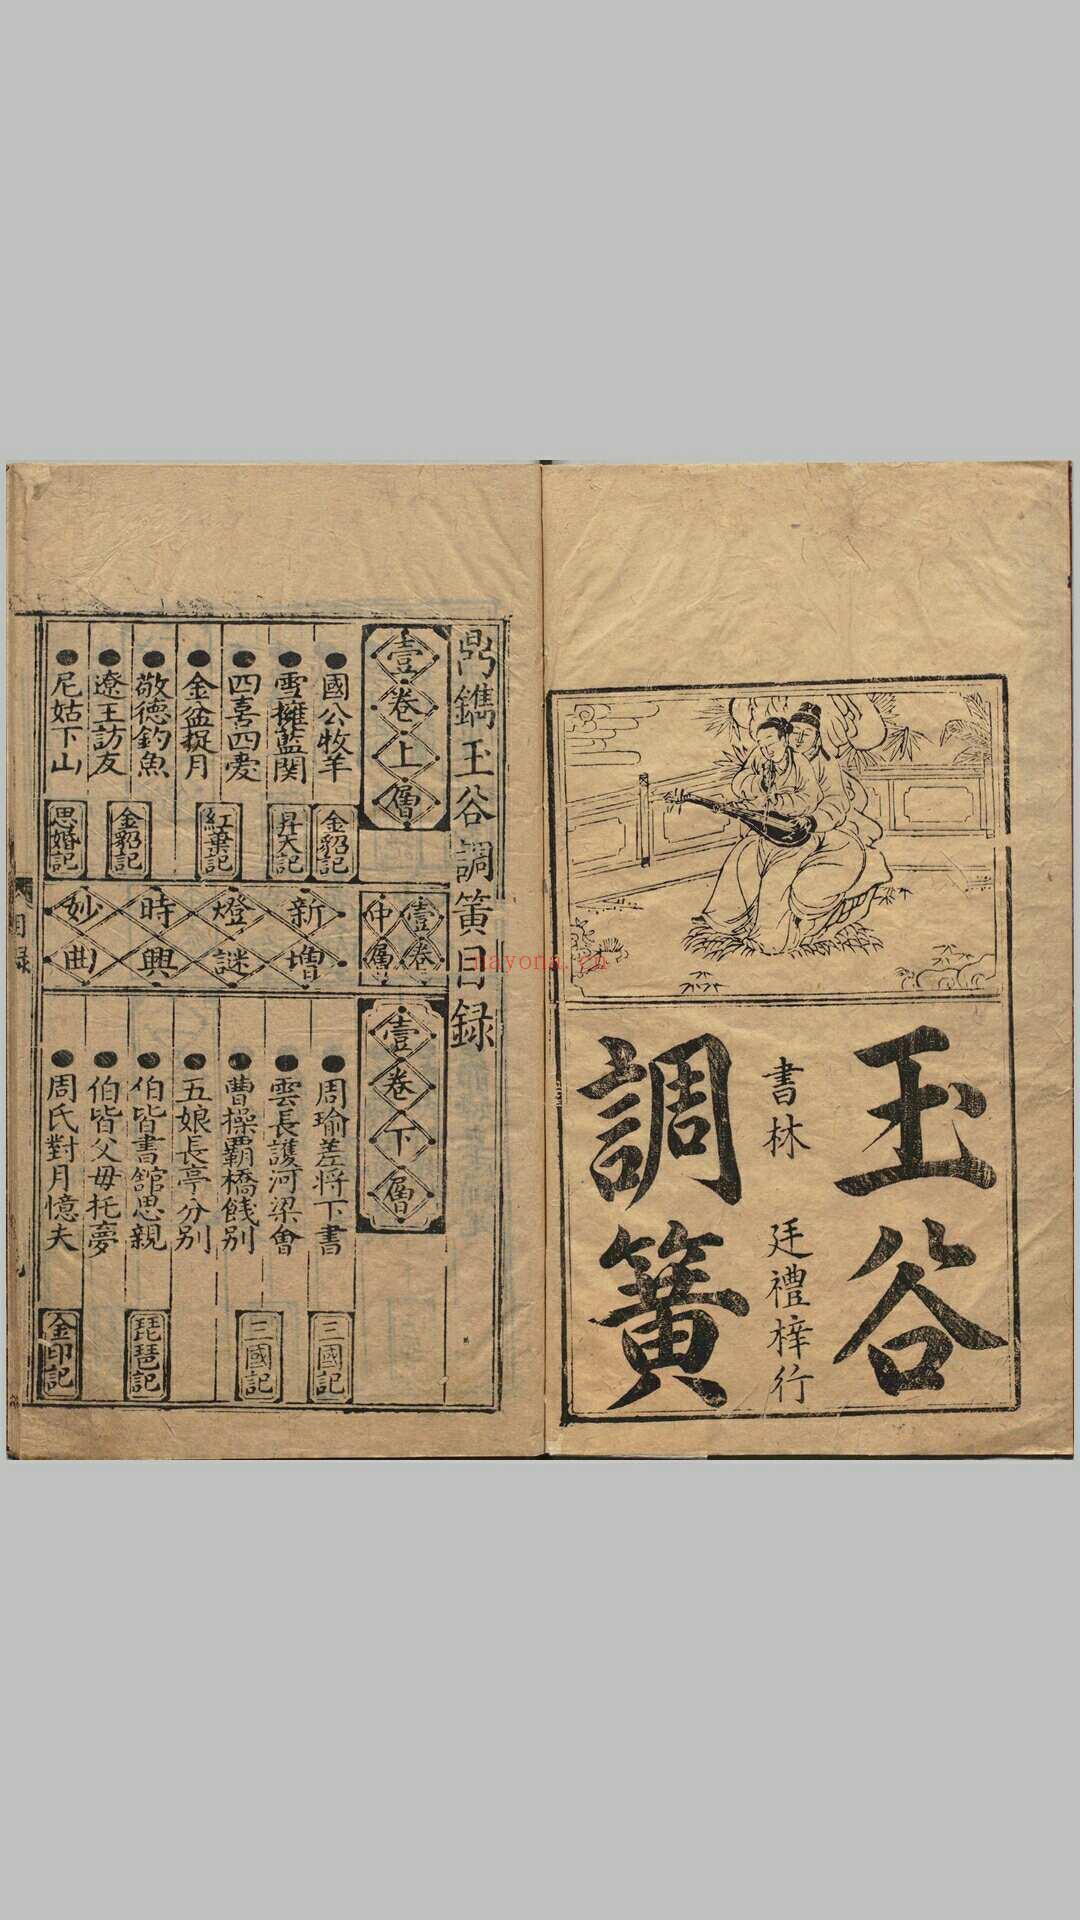 玉谷
書林 廷禮梓行
調簧
鼎鐫玉谷調簧目録
壹卷上層
國公牧羊 金貂記
雪擁藍関 昇天記
四喜四愛
金盆捉月 紅葉記
敬德釣魚
遼王訪友 金貂記
尼姑下山 思婚記
壹卷
仲層
新增
燈謎
時興
妙曲
壹卷下層
周瑜差將下書 三國記
雲長護河梁會
曹操覇橋餞别 三國記
五娘長亭分别
伯皆書館思親 琵琶記
伯皆父毋托夢
周氏對月憶夫 金印記
目録
nayona.cn